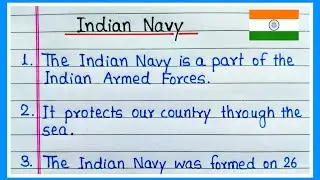 Indian Navy
1. The Indian Navy is a part of the
Indian Armed Forces.
2. It protects our country through the
sea.
3. The Indian Navy was formed on 26